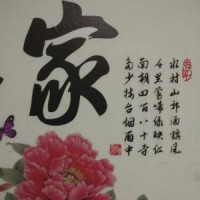 家
水村山郭酒旗风
千里莺啼绿映红
南朝四百八十寺
多少楼台烟雨中